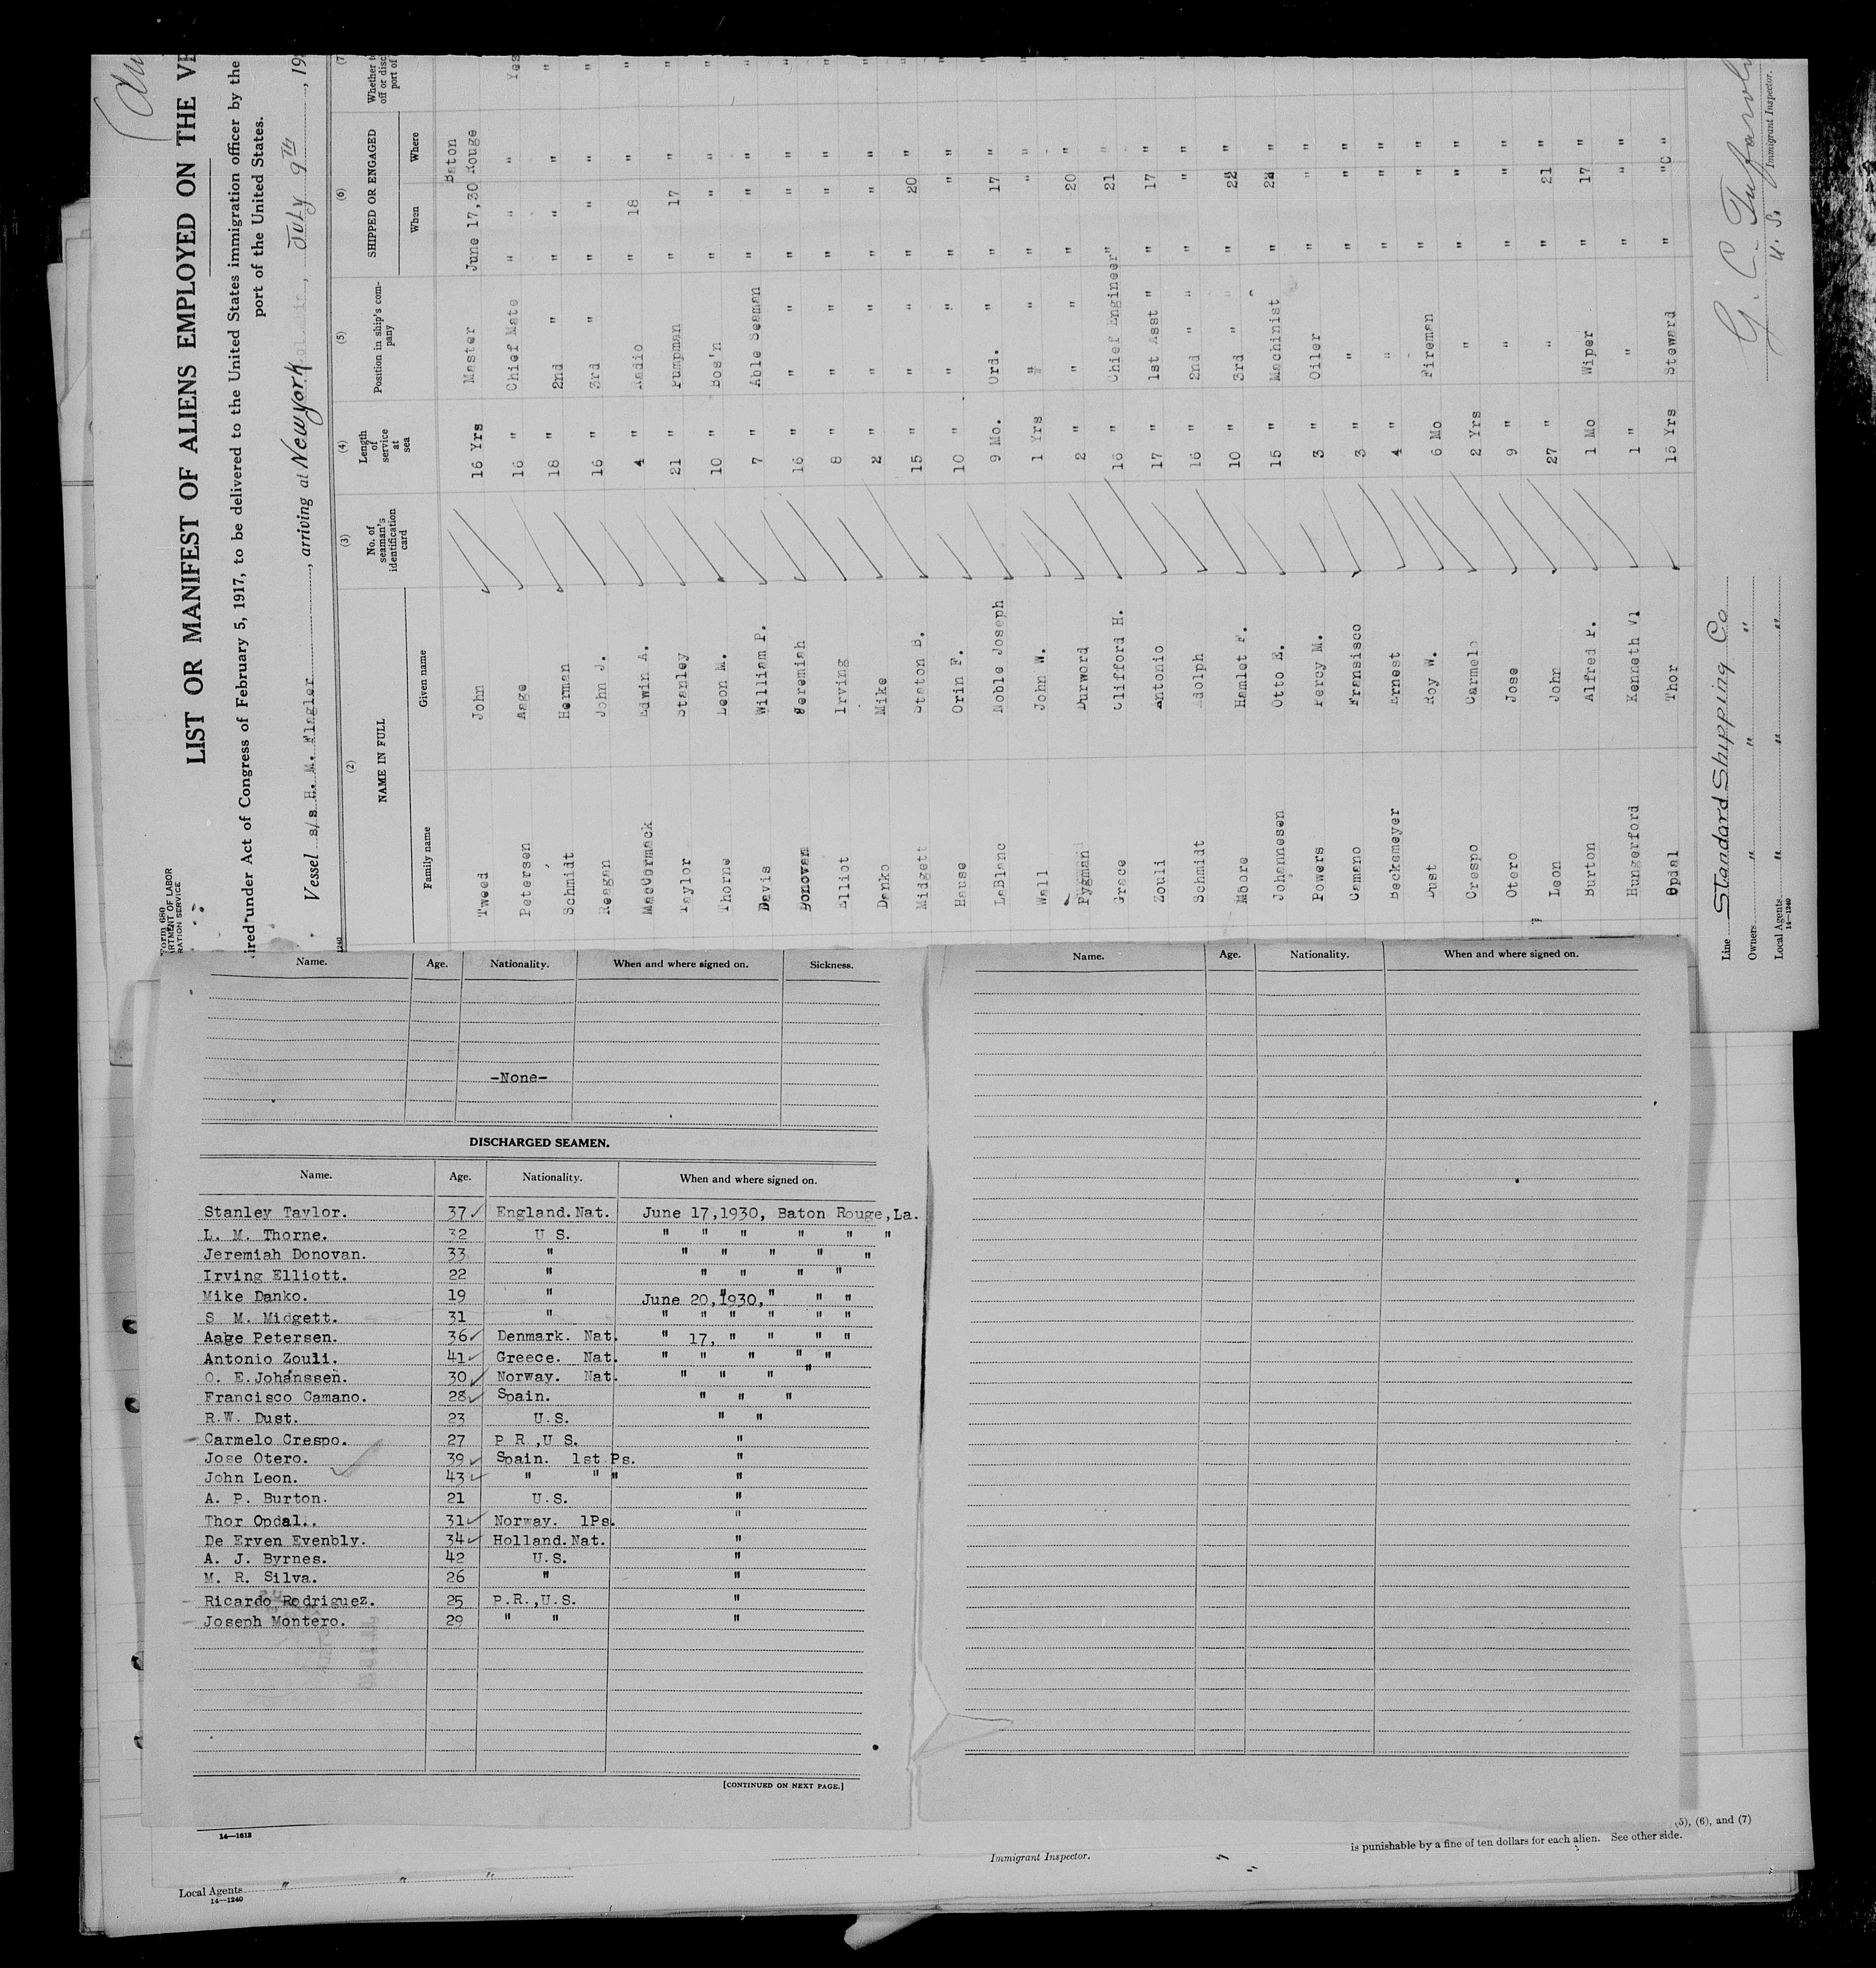 Form 680
RTMENT OF LABOR
RATION SERVICE
LIST OR MANIFEST OF ALIENS EMPLOYED ON THE VE
ired under Act of Congress of February 5, 1917, to be delivered to the United States immigration officer by the
port of the United States.
Vessel s/s H. M. Flagler, arriving at New York, July 9TH, 19
(2) (3) (4) (5) (6) (7)
NAME IN FULL No. of seaman's identification card Length of service at sea Position in ship's com-pany SHIPPED OR ENGAGED Whether t off or disc port of
Family name Given name When Where
Tweed John 16 Yrs Master June 17,30 Baton Rouge
Petersen Aage 16 " Chief Mate " " " Yes
Schmidt Herman 18 " 2nd " " " " "
Reagan John J. 16 " 3rd " " " " "
MacCormack Edwin A. 4 " Radio " 18 " "
Taylor Stanley 21 " Pumpman " 17 " "
Thorne Leon M. 10 " Bos'n " " " "
Davis William P. 7 " Able Seaman " " " "
Donovan Jeremiah 16 " " " " " " "
Elliot Irving 8 " " " " " " "
Danko Mike 2 " " " " " " "
Midgett Staton B. 15 " " " " 20 " "
Hause Orin F. 10 " " " " " " "
LaBlanc Noble Joseph 9 Mo. Ord. " " 17 " "
Wall John W. 1 Yrs " " " " " "
Pygman Durword 2 " " " 20 " "
Grace Clifford H. 16 " Chief Engineer " 21 " "
Zouli Antonio 17 " 1st Asst " " 17 " "
Schmidt Adolph 16 " 2nd " " " " " "
Moore Hamlet F. 10 " 3rd " " 22 " "
Johannesen Otto E. 15 " Machinist " 22 " "
Powers Percy M. 3 " Oiler " " " "
Camano Fransisco 3 " " " " " "
Becksmeyer Ernest 4 " " " " " "
Dust Roy W. 6 Mo Fireman " " " "
Crespo Carmelo 2 Yrs " " " " "
Otero Jose 9 " " " " " "
Leon John 27 " " " 21 " "
Burton Alfred P. 1 Mo Wiper " 17 " "
Hungerford Kenneth W. 1 " " " " "
Opdal Thor 15 Yrs Steward " " "
Line Standard Shipping Co
Owners " " "
Local Agents " " "
14—1240
U. S. Immigrant Inspector.
Name. Age. Nationality. When and where signed on. Sickness.
-None-
DISCHARGED SEAMEN.
Name. Age. Nationality. When and where signed on.
Stanley Taylor. 37 England.Nat. June 17,1930, Baton Rouge,La.
L. M. Thorne. 32 U S. " " " " " "
Jeremiah Donovan. 33 " " " " " "
Irving Elliott. 22 " " " " "
Mike Danko. 19 " June 20,1930, " " "
S M. Midgett. 31 " " " " " " "
Aage Petersen. 36 Denmark. Nat. " 17, " " " "
Antonio Zouli. 41 Greece. Nat. " " " " "
O. E.Johanssen. 30 Norway. Nat. " " " "
Francisco Camano. 28 Spain. " " "
R.W. Dust. 23 U.S. " "
Carmelo Crespo. 27 P R.,U S. "
Jose Otero. 39 Spain. 1st Ps. "
John Leon. 43 " " " "
A. P. Burton. 21 U.S. "
Thor Opdal.. 31 Norway. 1Ps. "
De Erven Evenbly. 34 Holland.Nat. "
A. J. Byrnes. 42 U.S. "
M. R. Silva. 26 " "
Ricardo Rodriguez. 25 P.R.,U.S. "
Joseph Montero. 29 " " "
[CONTINUED ON NEXT PAGE.]
14—1618
Name. Age. Nationality. When and where signed on.
(5), (6), and (7)
is punishable by a fine of ten dollars for each alien. See other side.
Immigrant Inspector.
Local Agents " " "
14—1240